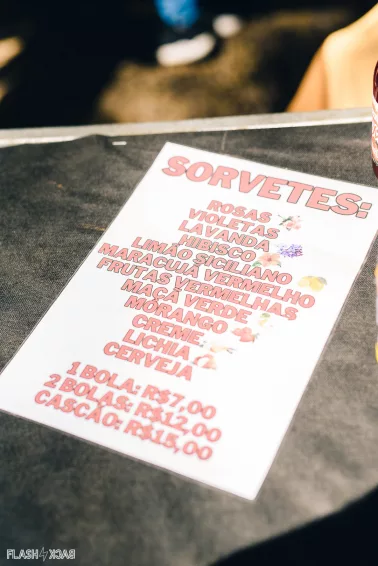 SORVETES:
ROSAS
VIOLETAS
LAVANDA
HIBISCO
LIMÃO SICILIANO
MARACUJÁ VERMELHO
FRUTAS VERMELHAS
MAÇÃ VERDE
MORANGO
CREME
LICHIA
CERVEJA
1 BOLA: R$7,00
2 BOLAS: R$12,00
CASCÃO: R$15,00
FLASH BACK